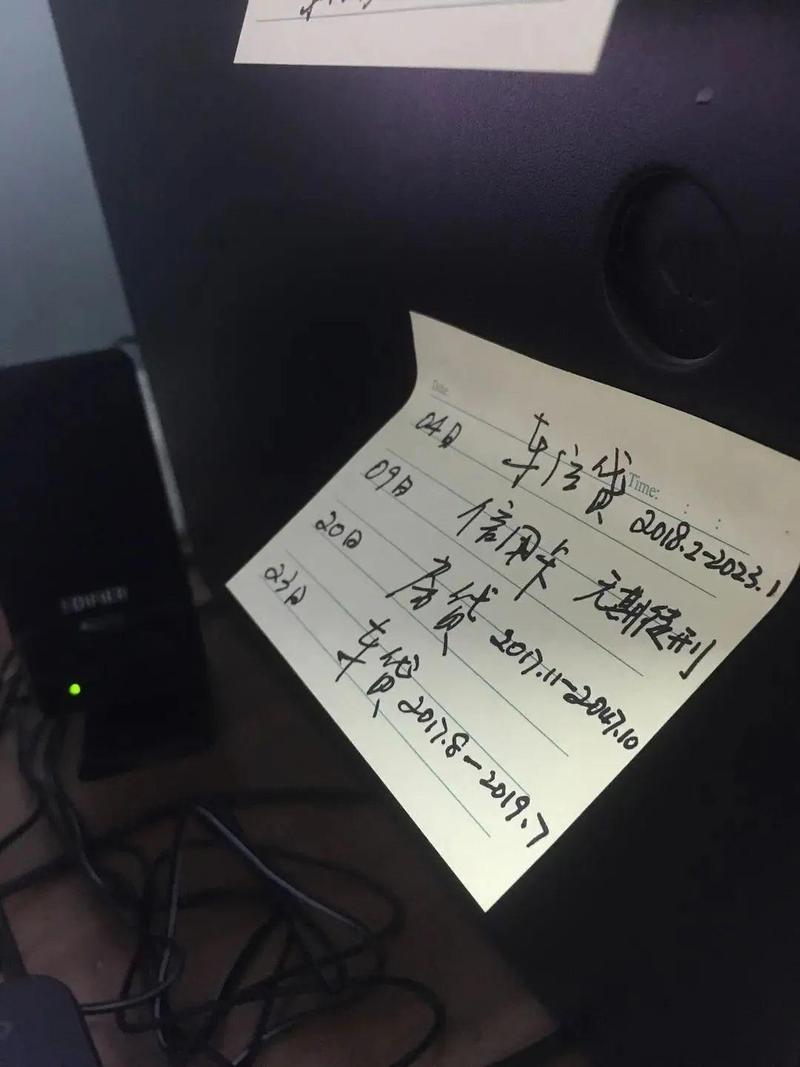 Date:
04日 车信贷 2018.2-2023.1
Time: : :
09日 信用卡 无期缓刑
20日 房贷 2017.11-2047.10
23日 车贷 2017.8-2019.7
EDIFIER